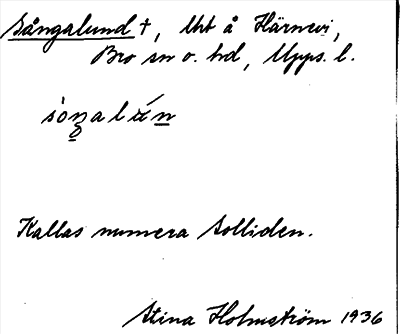 Sångalund †, lht å Härnevi,
Bro sn o. hd, Upps. l.
Kallas numera Solliden.
Stina Holmström 1936